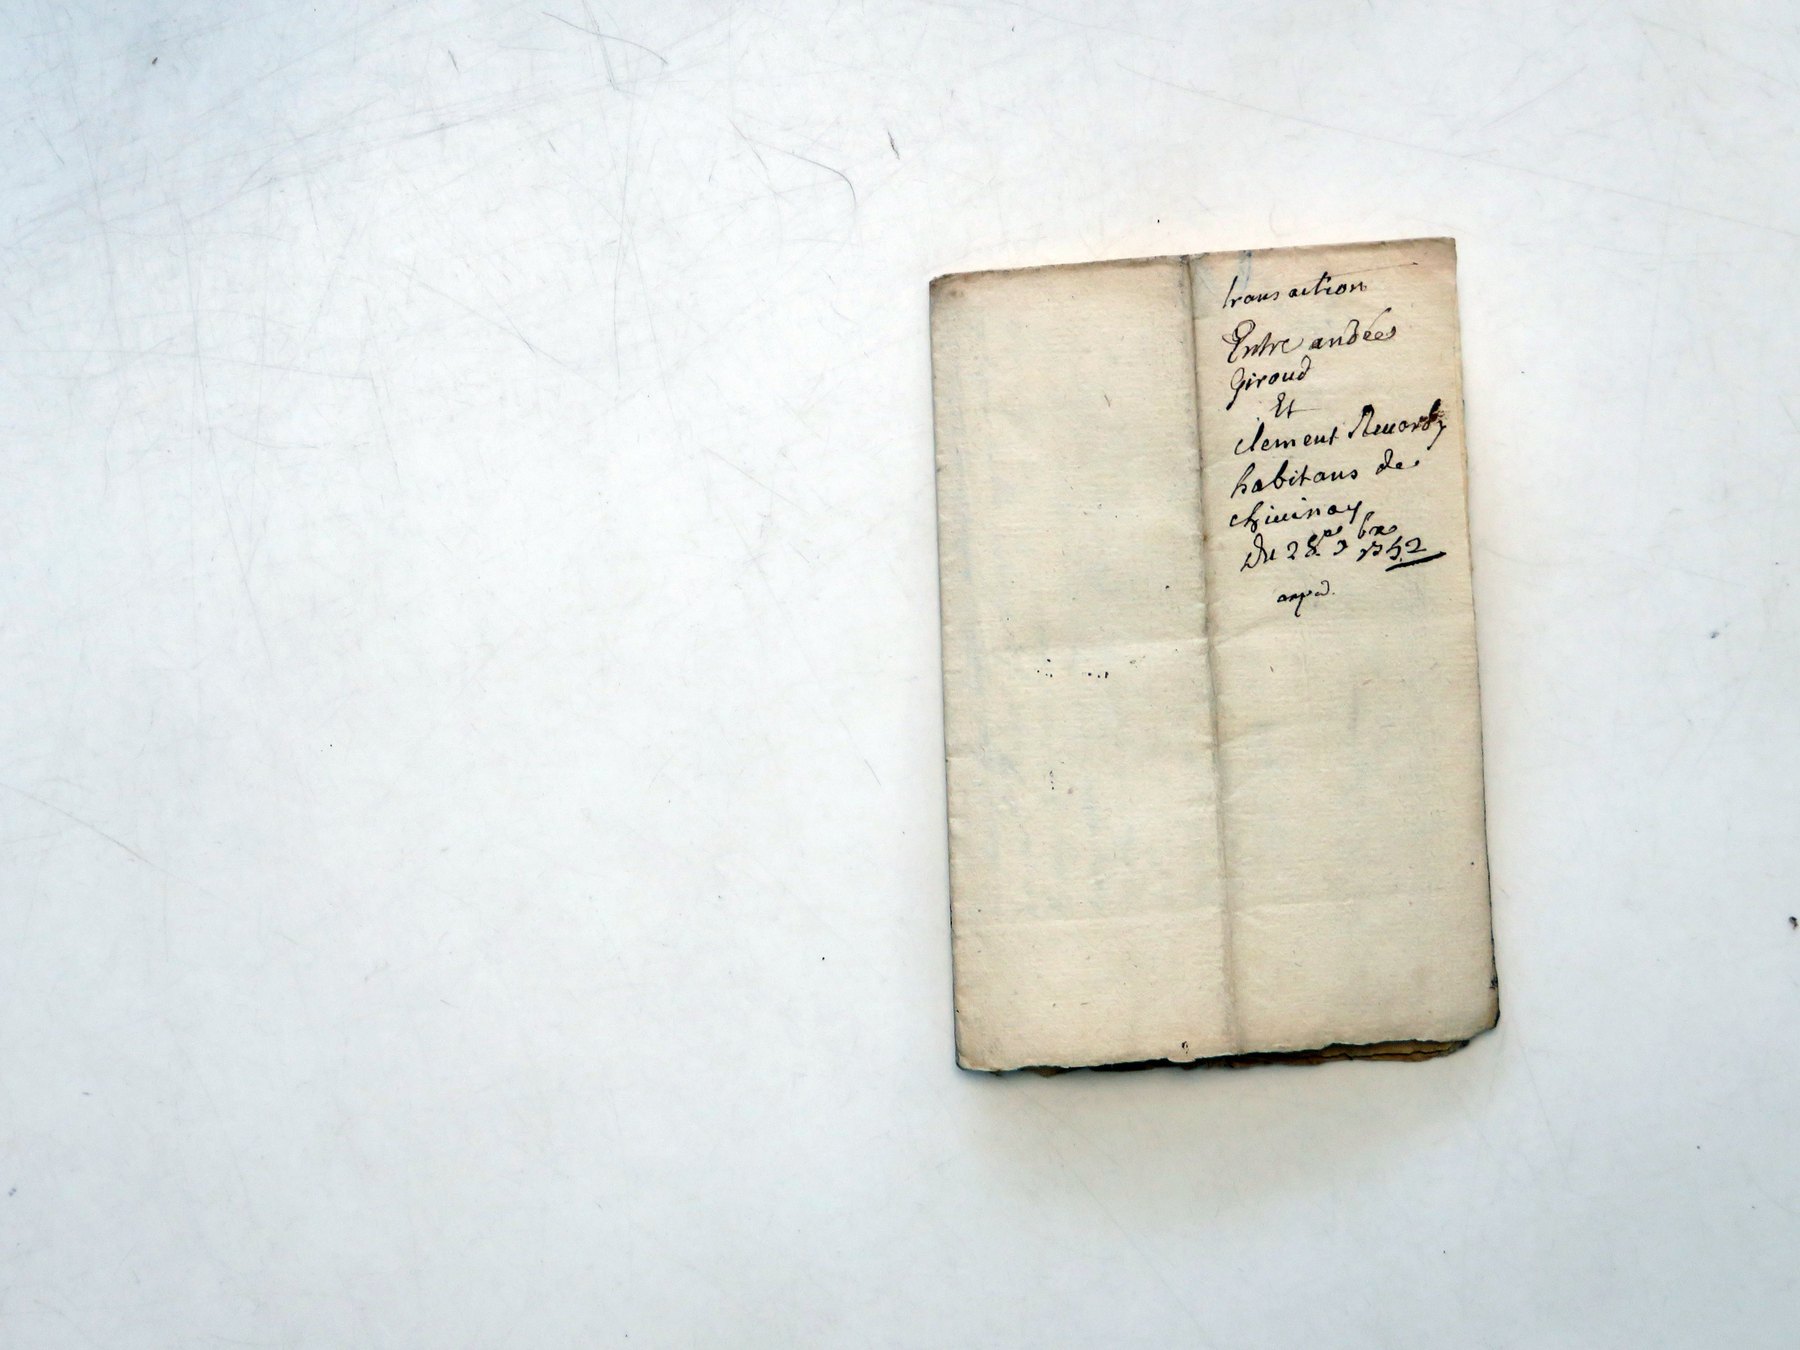 transaction
Entre andée
Giroud
Et
clement
habitans de
chiuinay
Du 28e 9bre 1752